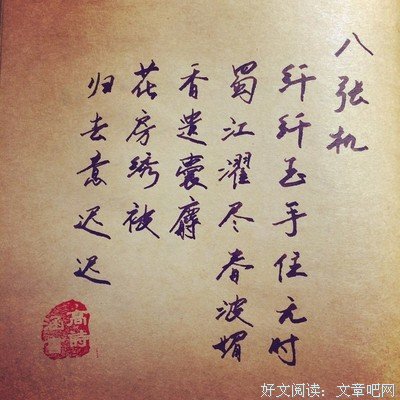 八张机
纤纤玉手住无时
蜀江濯尽春波媚
香遗囊麝
花房绣被
归去意迟迟
好文阅读：文章吧网